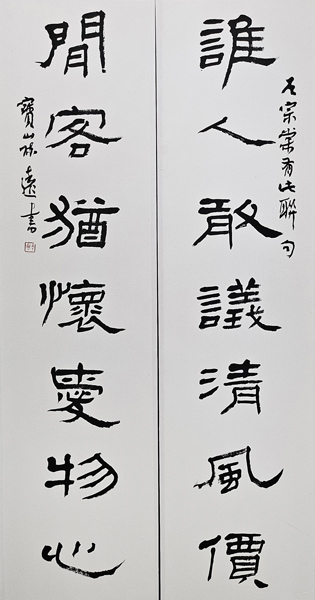 左宗棠有此聯句
誰人敢議清風價
閒客猶懷愛物心
寶山 遠書